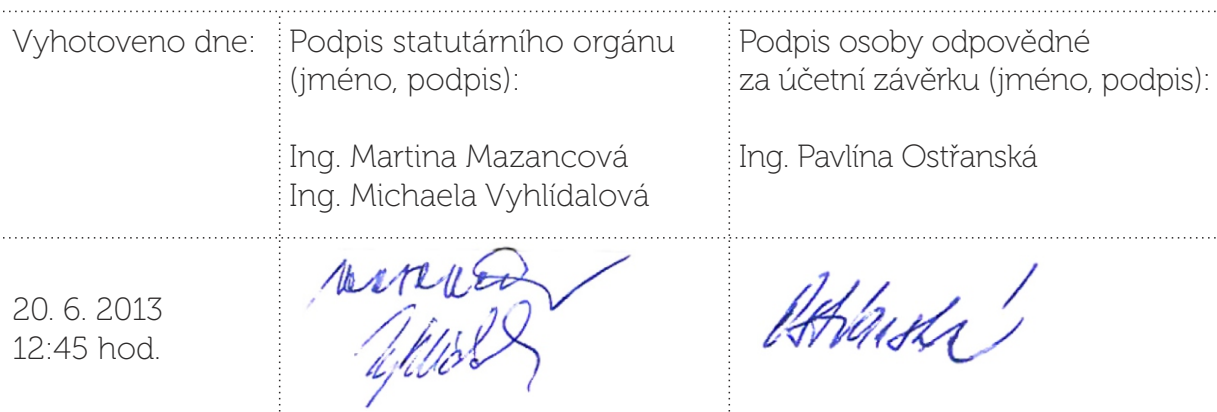 Vyhotoveno dne:
Podpis statutárního orgánu
(jméno, podpis):
Ing. Martina Mazancová
Ing. Michaela Vyhlídalová
Podpis osoby odpovědné
za účetní závěrku (jméno, podpis):
Ing. Pavlína Ostřanská
20. 6. 2013
12:45 hod.